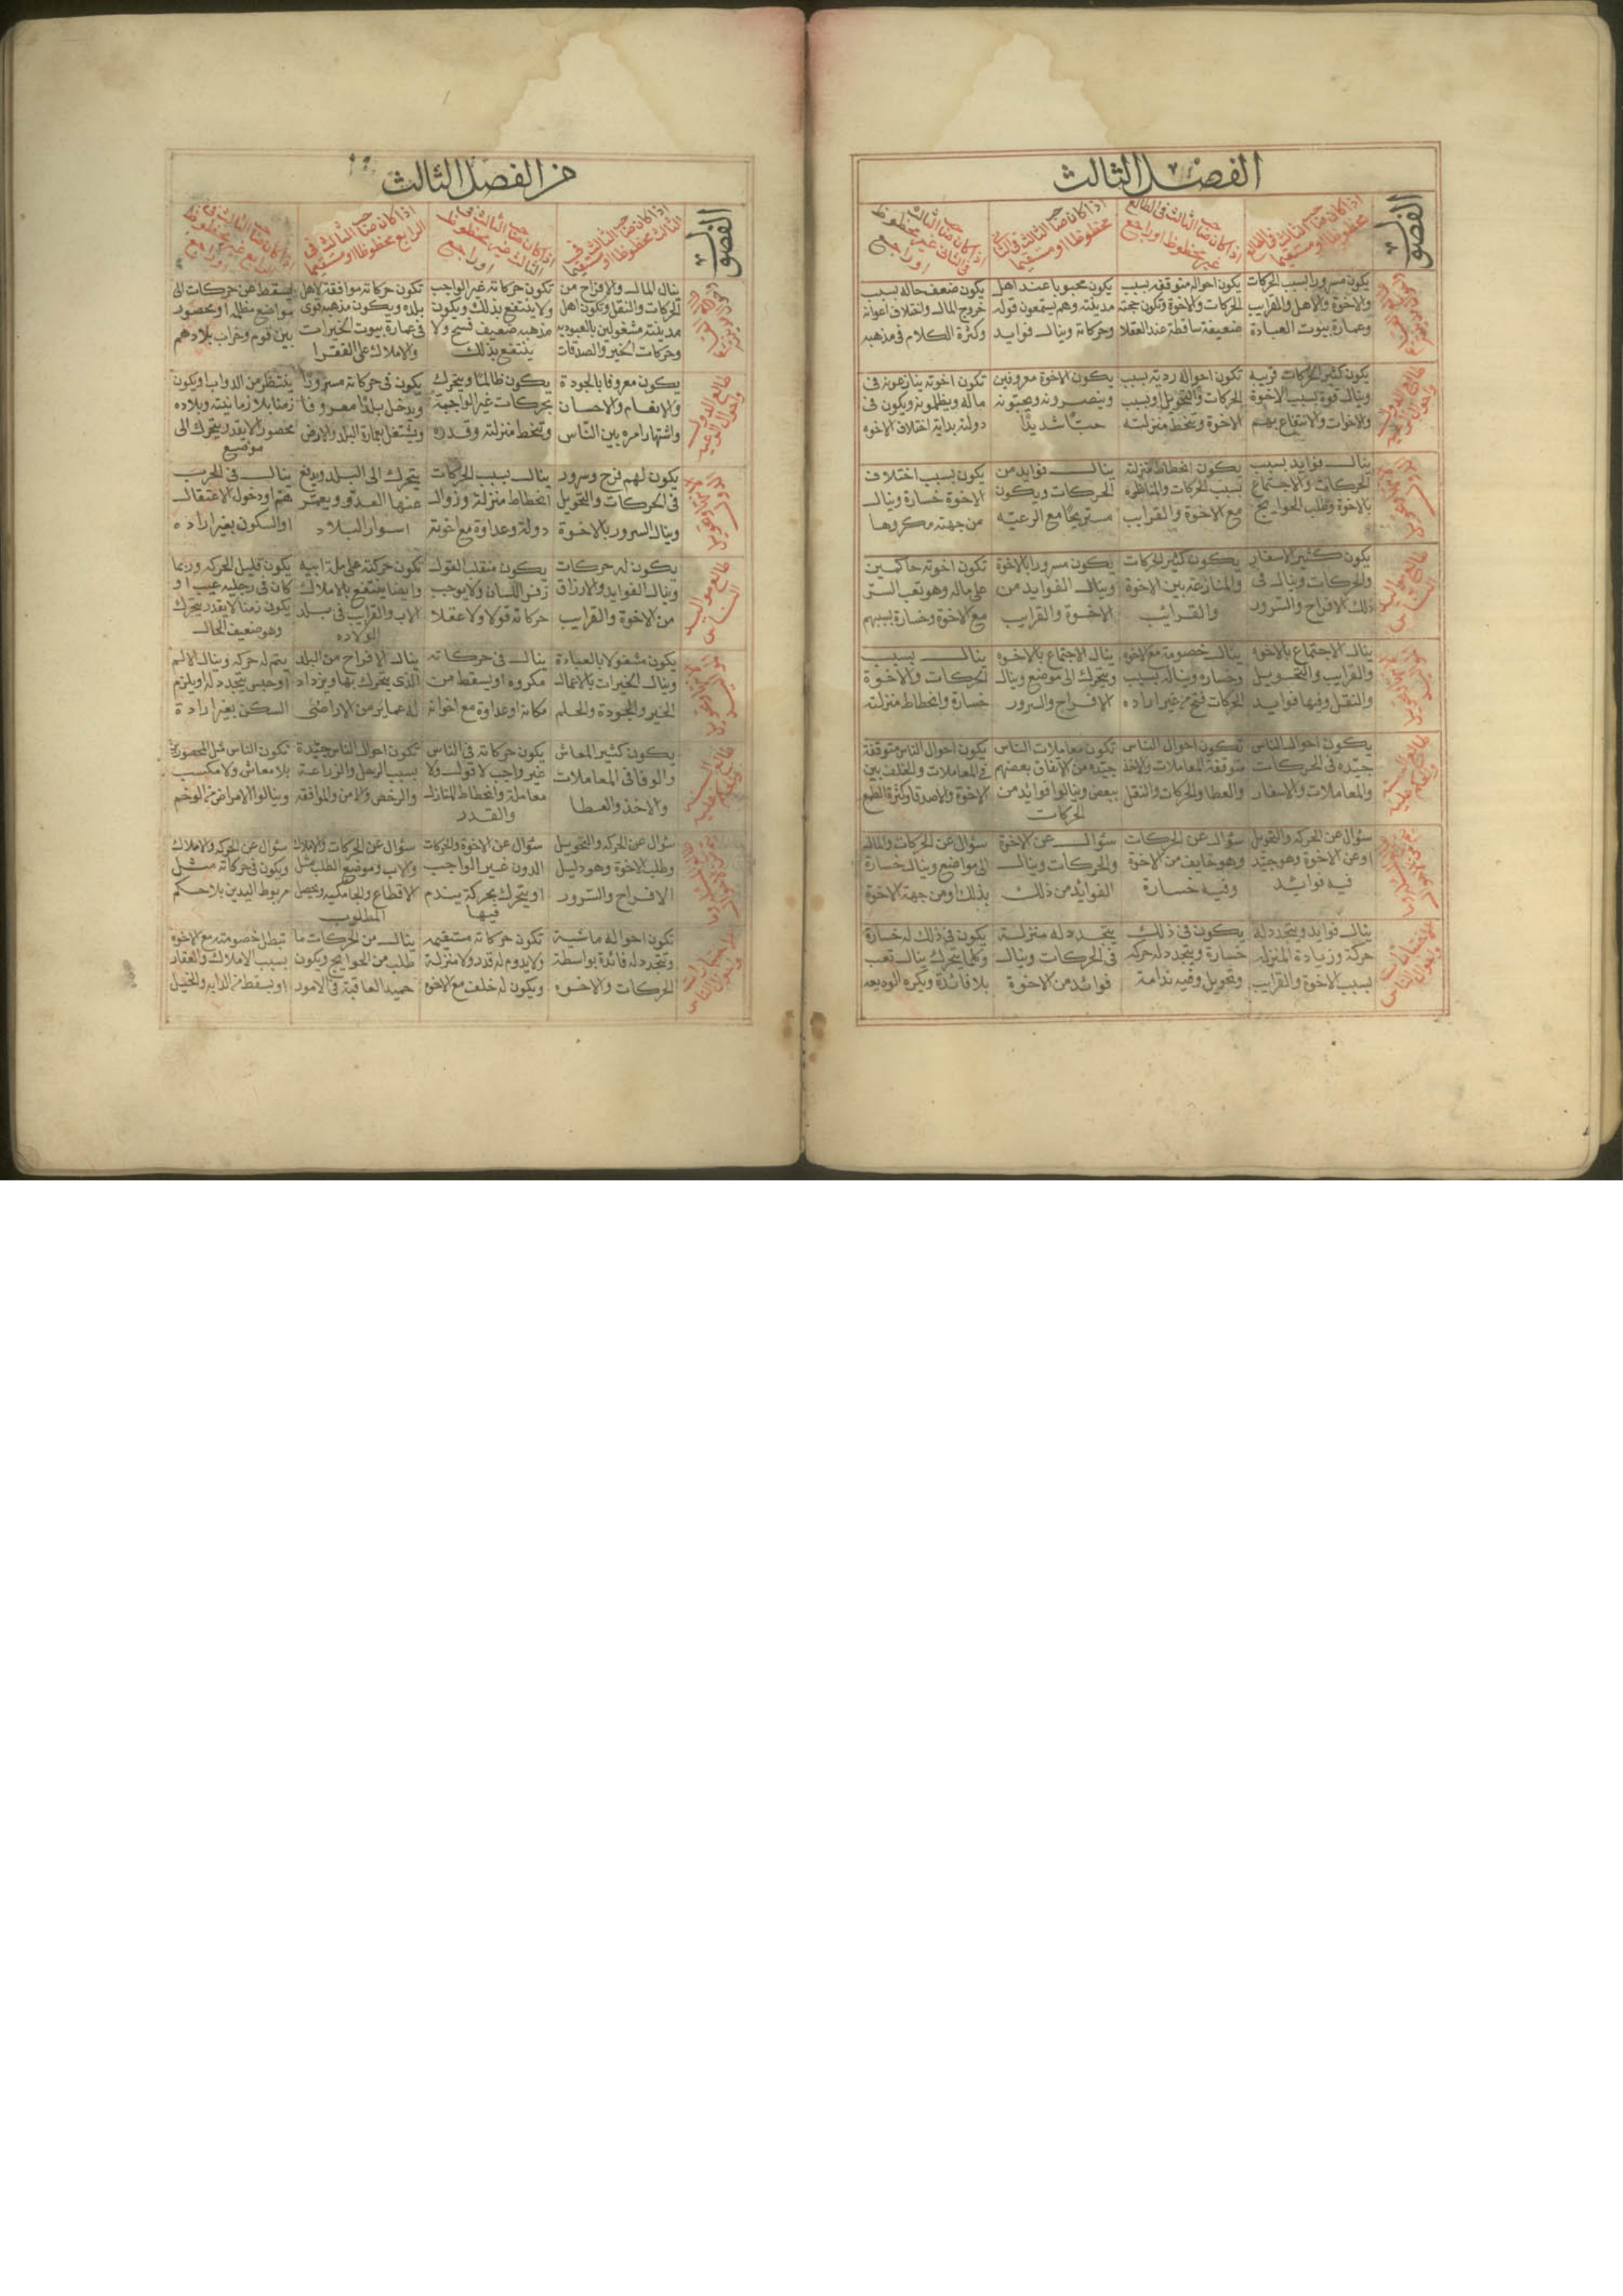 الفصل الثالث
الفصول
اذا كان صاحب الثالث في الطالع
محفوظا او مستقيما
اذا كان صاحب الثالث في الطالع
غير محفوظ او راجع
اذا كان صاحب الثالث في الثاني
محفوظا او مستقيما
اذا كان صاحب الثالث
في الثاني غير محفوظ
او راجع
يكون مسرورا بسبب الحركات
والاخوة والاهل والقرايب
وعمارة بيوت العبادة
يكون احواله متوقفه بسبب
الحركات والاخوة وتكون حجته
ضعيفة ساقطة عند العقلا
يكون محبوبا عند اهل
مدينته وهم يستمعون قوله
وحركاته وينال فوايد
يكون ضعف حاله بسبب
خروج المال واختلاف اعوانه
وكثرة الكلام في مذهبه
طالع الدول
يكون كثير الحركات قريبه
وينال قوة بسبب الاخوة
والاخوات والانتفاع بهم
تكون احواله ردية بسبب
الحركات والتحويل وبسبب
الاخوة وتنحط منزلته
يكون الاخوة معروفين
وينصرونه ويحبونه
حبا شديدا
تكون اخوته ينازعونه في
ماله ويظلمونه ويكون في
دولته بداية اختلاف الاخوه
ينال فوايد بسبب
الحركات والاجتماع
بالاخوة وطلب الحوايج
يكون انحطاط منزلته
بسبب الحركات والمناظره
مع الاخوة والقرايب
ينال فوايد من
الحركات ويكون
مستريحا مع الرعيه
يكون بسبب اختلاف
الاخوة خسارة وينال
من جهته مكروها
طالع مواليد
الناس
يكون كثير الاسفار
والحركات وينال في
ذلك الافراح والسرور
يكون كثير الحركات
والمنازعة بين الاخوة
والقرائب
يكون مسرورا بالاخوة
وينال الفوايد من
الاخوة والقرايب
تكون اخوته حاكمين
على ماله وهو تعب السر
مع الاخوة وخسارة بسببهم
ينال الاجتماع بالاخوه
والقرايب والتحويل
والنقل وفيها فوايد
ينال خصومة مع الاخوه
وخساره ويناله بسبب
الحركات فتح من غير اراده
ينال الاجتماع بالاخوه
ويتحرك الى موضع وينال
الافراح والسرور
ينال بسبب
الحركات والاخوة
خسارة وانحطاط منزلته
طالع السنه
يكون احوال الناس
جيده في الحركات
والمعاملات والاسفار
تكون احوال الناس
متوقفة المعاملات والاخذ
والعطا والحركات والنقل
تكون معاملات الناس
جيده من الاتفاق بعضهم
ببعض وينالوا فوائد من
الحركات
يكون احوال الناس متوقفة
في المعاملات والخلف بين
الاخوة والاصدقا وكثرة الطمع
سؤال عن الحركه والتحويل
او عن الاخوة وهو جيد
فيه فوائد
سؤال عن الحركات
وهو خايف من الاخوة
وفيه خسارة
سؤال عن الاخوة
والحركات وينال
الفوائد من ذلك
سؤال عن الحركات والماله
الى مواضع وينال خسارة
بذلك او من جهة الاخوة
الاختيارات
واحوال الناس
ينال فوايد ويتجدد له
حركة وزيادة المنزله
بسبب الاخوة والقرايب
يكون في ذلك
خسارة ويتجدد له حركه
وتحويل وفيه ندامة
يتجدد له منزلة
في الحركات وينال
فوائد من الاخوة
يكون في ذلك له خسارة
وكلما يتحرك ينال تعب
بلا فائدة ويكره الوديعه
من الفصل الثالث
الفصول
اذا كان صاحب الثالث في
الثالث محفوظا او مستقيما
اذا كان صاحب الثالث في
الثالث غير محفوظ
او راجع
اذا كان صاحب الثالث في
الرابع محفوظا او مستقيما
اذا كان صاحب الثالث في
الرابع غير محفوظ
او راجع
ينال المال والافراح من
الحركات والنقل وتكون اهل
مدينته مشغولين بالعبوديه
وحركات الخير والصدقات
تكون حركاته غير الواجب
ولا ينتفع بذلك ويكون
مذهبه ضعيف فسح ولا
ينتفع بذلك
تكون حركاته موافقة لاهل
بلده ويكون مذهبه قوى
في عمارة بيوت الخيرات
والاملاك على الفقرا
يسقط من حركات الى
مواضع مظلمه او محصور
بين قوم وخراب بلادهم
طالع الدول
يكون معروفا بالجودة
والانعام والاحسان
واشتهار امره بين الناس
يكون ظالما ويتحرك
بحركات غير الواجبة
وتنحط منزلته وقدره
يكون في حركاته مسرورا
ويدخل بلدا معروفا
ويشتغل بعمارة البلد والارض
ينتظر من الدواب او يكون
زمنا بلا زمانيته وبلاده
محصور لا يقدر يتحرك الى
موضع
يكون لهم فرح وسرور
في الحركات والتحويل
وينال السرور بالاخوة
ينال بسبب الحركات
انحطاط منزلة وزوال
دولة وعداوة مع اخوته
يتحرك الى البلد ويدفع
عنها العدو ويعمر
اسوار البلاد
ينال في الحرب
هم او دخول الاعتقال
او السكون بغير اراده
طالع مواليد
الناس
يكون له حركات
وينال الفوايد والارزاق
من الاخوة والقرايب
يكون منقلب القول
زفر اللسان ولا يوجب
حركاته قولا ولا عقلا
تكون حركته على ملة ابيه
وايضا ينتفع بالاملاك
الاب والقرايب في بلد
الولاده
يكون قليل الحركه وربما
كان في رجليه عيب او
يكون زمنا لا يقدر يتحرك
وهو ضعيف الحال
يكون مشغولا بالعبادة
وينال الخيرات بالاعمال
الخير والجودة والحلم
ينال في حركاته
مكروه او يسقط من
مكانه او عداوة مع اخوانه
ينال الافراح من البلد
الذي يتحرك بها ويزداد
له عماير من الاراضي
يتم له حركه وينال الالم
او حبس يتجدد له ويلزم
السكن بغير ارادة
طالع السنه
يكون كثير المعاش
والوفا في المعاملات
والاخذ والعطا
يكون حركاته في الناس
غير واجب لا قول ولا
معاملة وانحطاط المنازل
والقدر
تكون احوال الناس جيدة
بسبب الرحل والزراعة
والرخص والامن والموافقه
تكون الناس مثل المحصورين
بلا معاش ولا مكسب
وينالوا الامراض من الوخم
سؤال عن الحركة والتحويل
وطلب الاخوة وهو دليل
الافراح والسرور
سؤال عن الاخوة والحركات
الدون غير الواجب
او يتحرك بحركة يندم
فيها
سؤال عن الحركات والاملاك
والاب وموضع الطلب مثل
الاقطاع والجامكيه ويحصل
المطلوب
سؤال عن الحركه والاملاك
ويكون في حركاته مثل
مربوط اليدين بلا حكم
الاختيارات
واحوال الناس
تكون احواله ماشية
وتتجدد له فائدة بواسطة
الحركات والاخوه
تكون حركاته مستقيمه
ولا يدوم له قدر ولا منزلة
ويكون له خلف مع الاخوه
ينال من الحركات ما
طلب من الحوايج ويكون
حميد العاقبة في الامور
تبطل خصومته مع الاخوة
بسبب الاملاك والعقار
او يسقط من الدابه والخيل